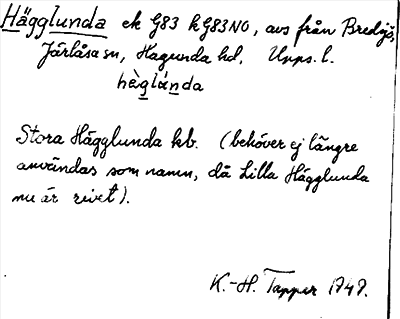 Hägglunda ek G83 k G83NO, avs från Bredsjö,
Järlåsa sn, Hagunda hd, Upps. l.
hèglúnda
Stora Hägglunda kb. (behöver ej längre
användas som namn, då Lilla Hägglunda
nu är rivet).
K.-H. Tapper 1949.